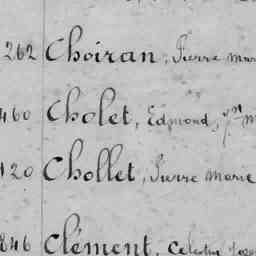 262 Choiran, Pierre Mar
460 Cholet, Edmond, J^n M
120 Chollet, Pierre Marie
846 Clément, Celestin Jose